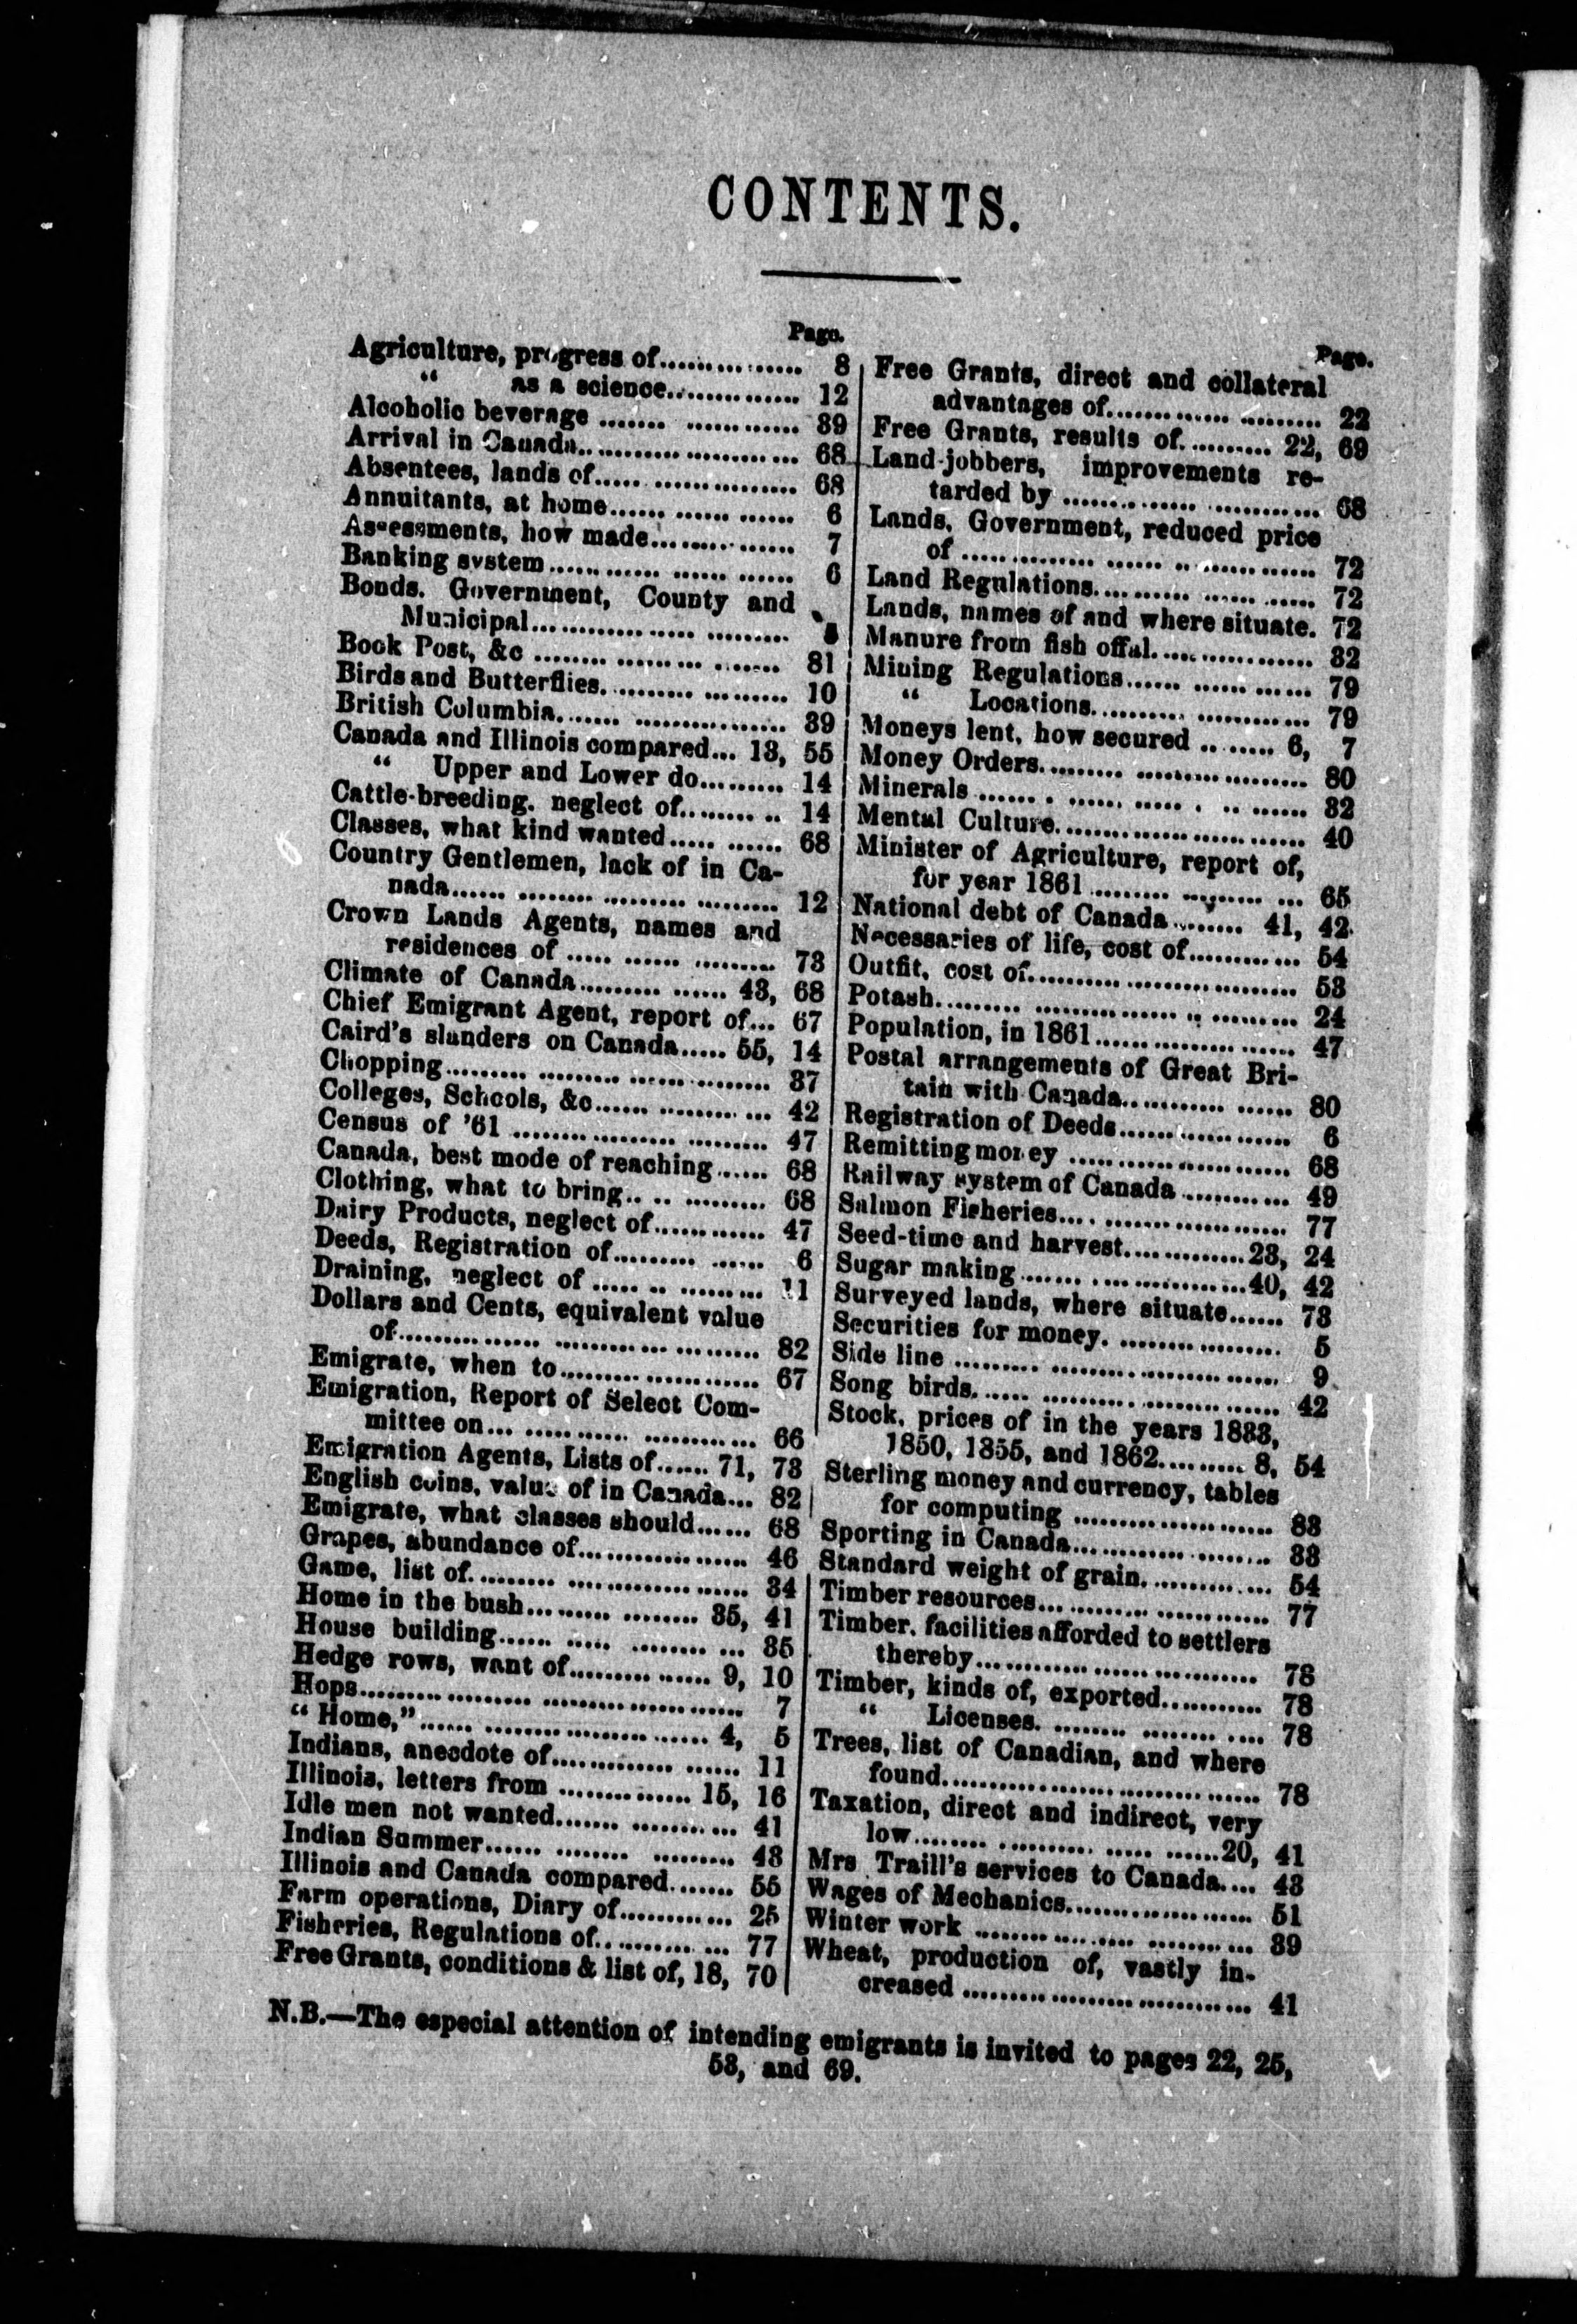 CONTENTS.
Page.
Agriculture, progress of.................. 8
“ as a science............... 12
Alcoholic beverage ....... ............ 39
Arrival in Canada........................ 68
Absentees, lands of...................... 68
Annuitants, at home...... ...... ...... 6
Assessments, how made................ 7
Banking system............ ...... ...... 6
Bonds. Government, County and
Municipal............... .........
Book Post, &c ......................... 81
Birds and Butterflies. ......... ......... 10
British Columbia....... ................ 39
Canada and Illinois compared... 13, 55
“ Upper and Lower do......... 14
Cattle-breeding. neglect of......... .. 14
Classes, what kind wanted..... ...... 68
Country Gentlemen, lack of in Ca-
nada...... ......... ......... ......... 12
Crown Lands Agents, names and
residences of ..... ...... ......... 73
Climate of Canada......... ...... 43, 68
Chief Emigrant Agent, report of... 67
Caird's slanders on Canada..... 55, 14
Chopping......... ......... ............... 37
Colleges, Schools, &c...... ......... ... 42
Census of '61 .................. ......... 47
Canada, best mode of reaching...... 68
Clothing, what to bring.. .. ......... 68
Dairy Products, neglect of............ 47
Deeds, Registration of......... ...... 6
Draining, neglect of ..... .. ......... 11
Dollars and Cents, equivalent value
of............... ............ ......... 82
Emigrate, when to..................... 67
Emigration, Report of Select Com-
mittee on... ............ ............ 66
Emigration Agents, Lists of...... 71, 73
English coins, value of in Canada... 82
Emigrate, what classes should...... 68
Grapes, abundance of.................. 46
Game, list of.......... ............ ...... 34
Home in the bush......... ......... 35, 41
House building...... ..... ......... ... 35
Hedge rows, want of............... 9, 10
Hops.................. ..................... 7
“ Home,”...... .................. ...... 4, 5
Indians, anecdote of............ ...... 11
Illinois, letters from ............... 15, 16
Idle men not wanted....... ............ 41
Indian Summer...... ........ ......... 43
Illinois and Canada compared....... 55
Farm operations, Diary of............ 25
Fisheries, Regulations of............ 77
Free Grants, conditions & list of, 18, 70
Page.
Free Grants, direct and collateral
advantages of............... ......... 22
Free Grants, results of.......... 22, 69
Land-jobbers, improvements re-
tarded by ............... ............ 68
Lands, Government, reduced price
of ............... ...... .. ............ 72
Land Regulations............ ...... ...... 72
Lands, names of and where situate. 72
Manure from fish offal.................. 32
Mining Regulations...... ...... ...... 79
“ Locations.......... ............ 79
Moneys lent, how secured .. ...... 6, 7
Money Orders......... .................. 80
Minerals ....... . ...... ..... . .. ...... 32
Mental Culture........................... 40
Minister of Agriculture, report of,
for year 1861 ......... ......... ... 65
National debt of Canada........ 41, 42
Necessaries of life, cost of............ 54
Outfit, cost of........................... 53
Potash......... ............... .. ......... 24
Population, in 1861..................... 47
Postal arrangements of Great Bri-
tain with Canada............ ...... 80
Registration of Deeds.................. 6
Remitting money ........................ 68
Railway system of Canada ............ 49
Salmon Fisheries.... .................. 77
Seed-time and harvest...............23, 24
Sugar making ....... ..................40, 42
Surveyed lands, where situate...... 73
Securities for money. .................. 5
Side line ......... ........................ 9
Song birds...... ........................ 42
Stock, prices of in the years 1833,
1850, 1855, and 1862......... 8, 54
Sterling money and currency, tables
for computing ..................... 83
Sporting in Canada..................... 33
Standard weight of grain............... 54
Timber resources............ ............ 77
Timber, facilities afforded to settlers
thereby.............................. 78
Timber, kinds of, exported............ 78
“ Licenses. ........ ......... .... 78
Trees, list of Canadian, and where
found................................. 78
Taxation, direct and indirect, very
low........ .......... ..... ......20, 41
Mrs Traill's services to Canada.... 43
Wages of Mechanics..................... 51
Winter work ............... ............ 39
Wheat, production of, vastly in-
creased .............................. 41
N.B.—The especial attention of intending emigrants is invited to pages 22, 25,
53, and 69.